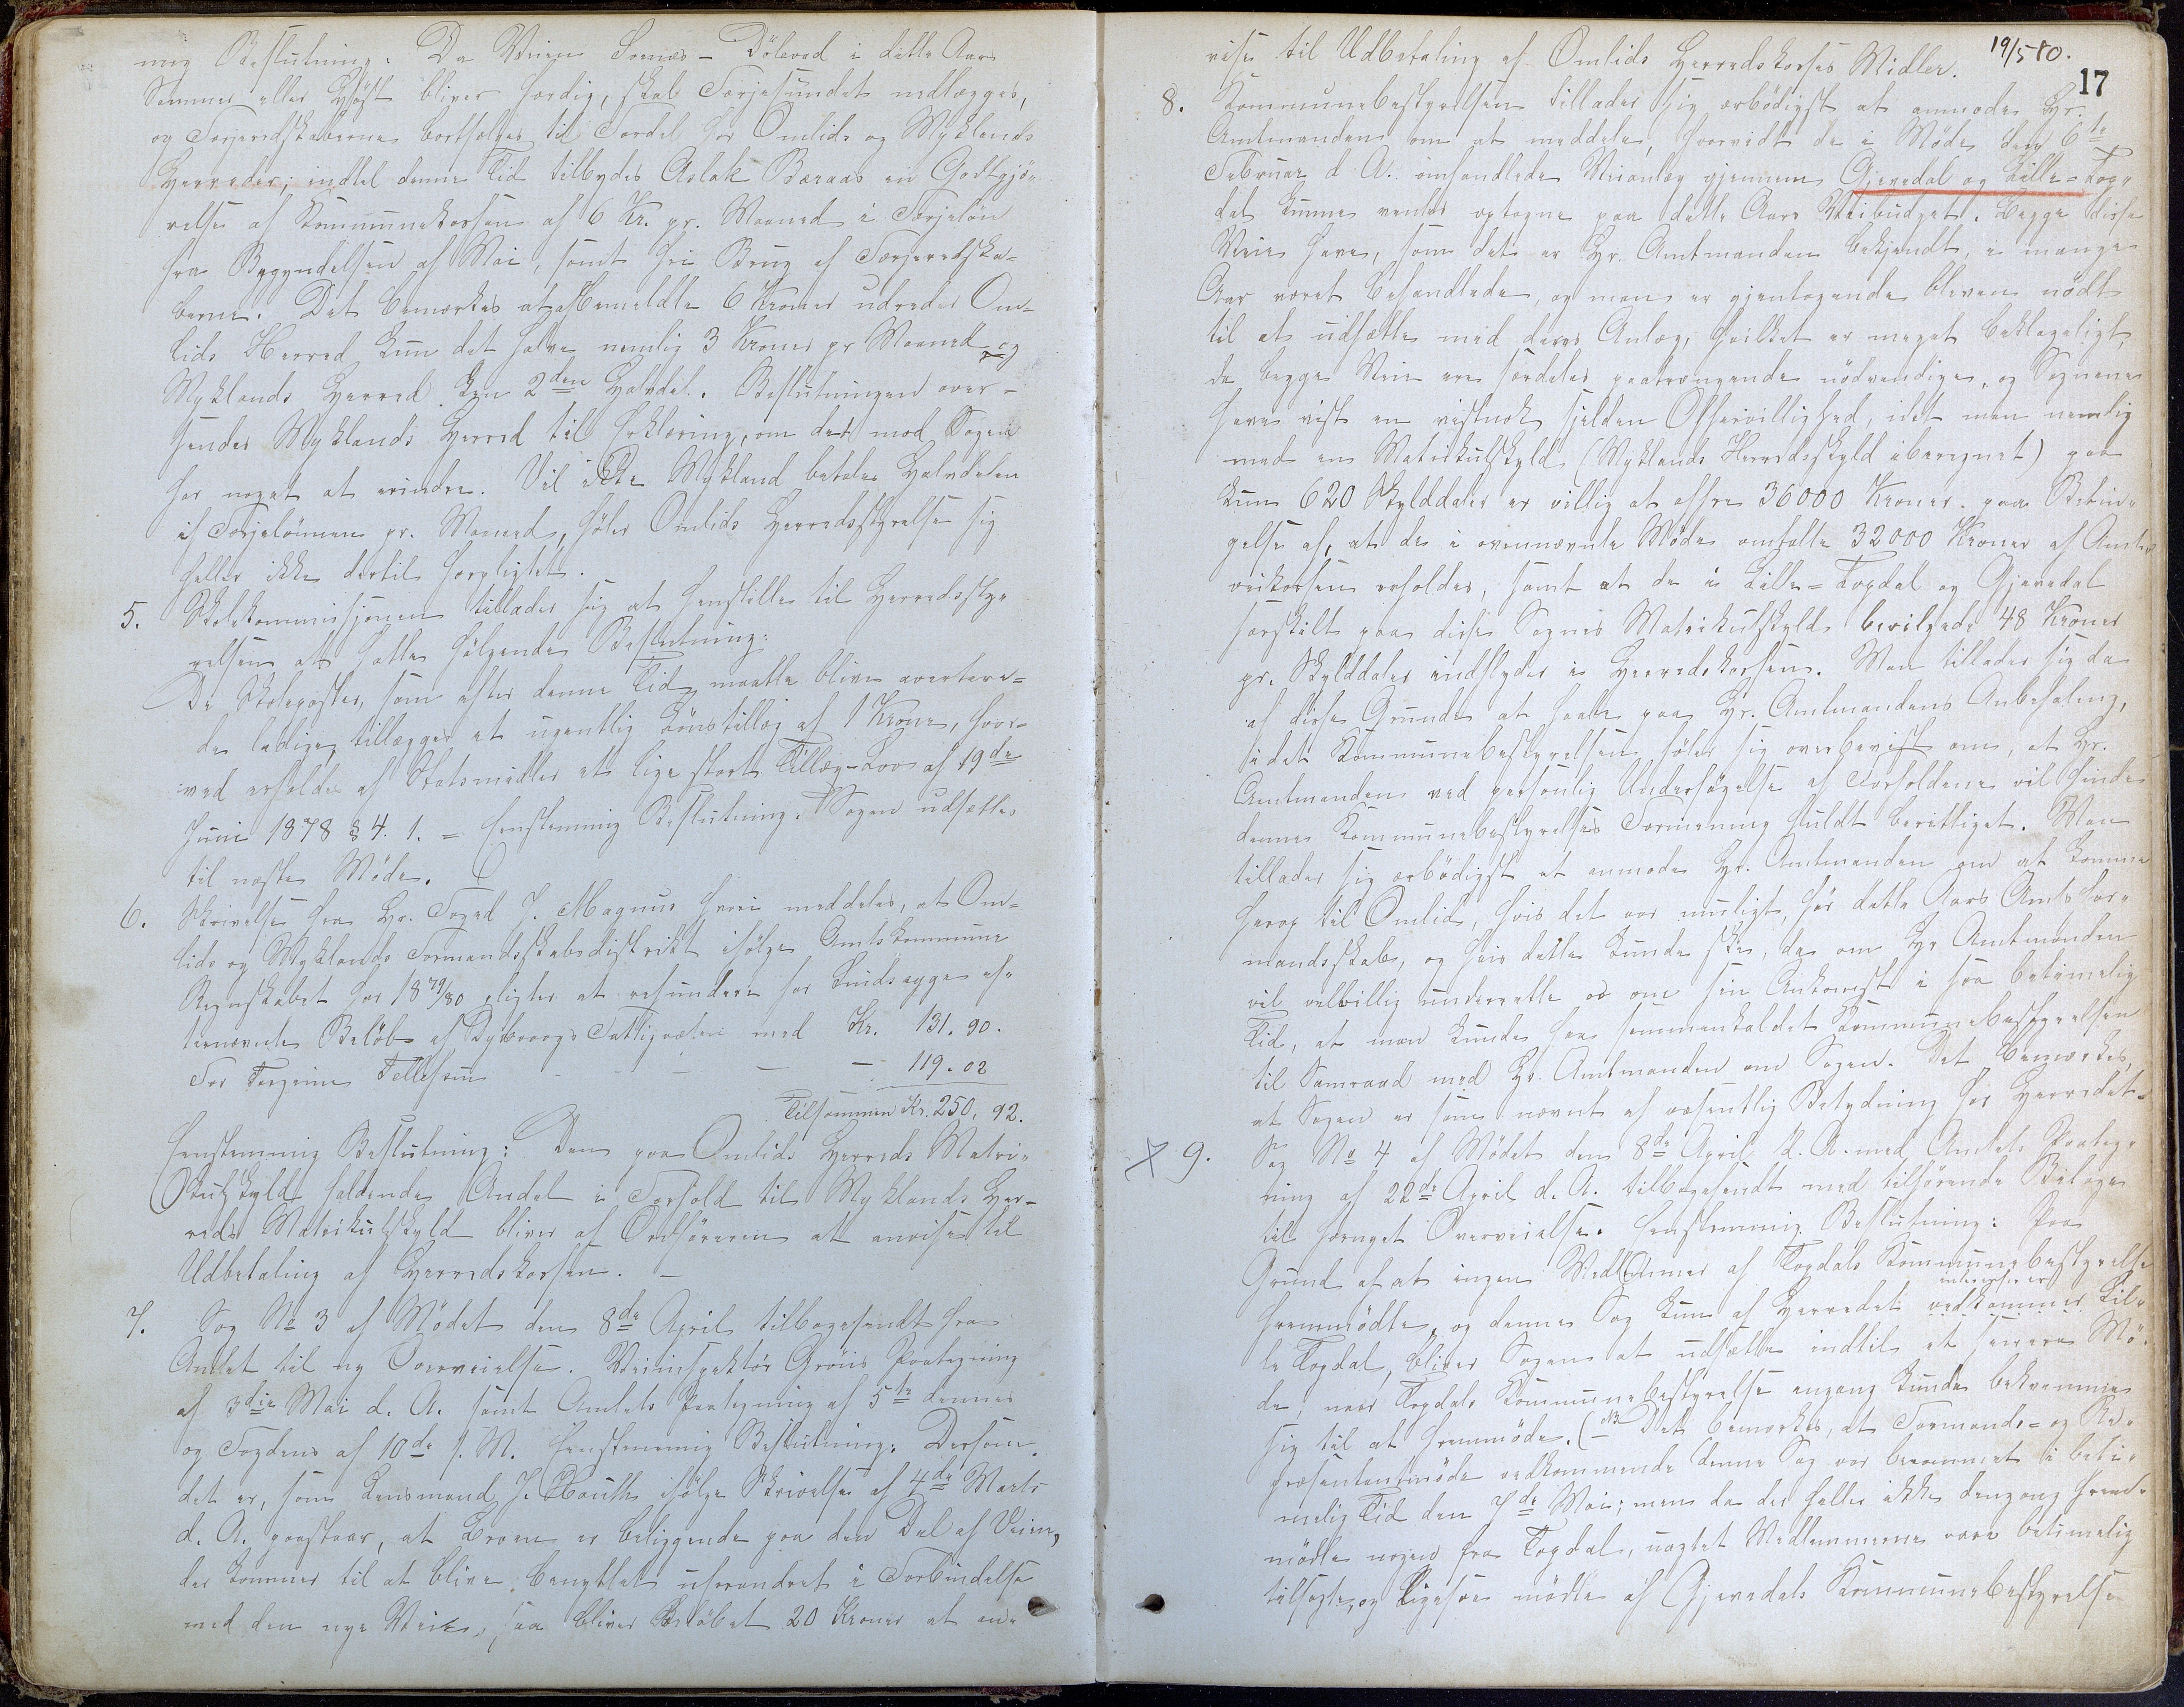 nig Beslutning: Da Veien Svenæs - Dölevad i dette Aars
Sommer eller Höst bliver færdig, skal Færjesundet nedlægges,
og Færjeredskaberne bortsælges til Fordel for Omlids og Myklands
Herreder; indtil denne Tid tilbydes Aslak Beraas en Godtgjö-
relse af Kommunekassen af 6 Kr. pr. Maaned i Færjelön
fra Begyndelsen af Mai, samt fri Brug af Færjeredska-
berne. Det bemærkes at af bemeldte 6 Kroner udreder Om-
lids Herred kun det halve nemlig 3 Kroner pr Maaned og
Myklands Herred den 2den Halvdel. Beslutningen over-
sendes Myklands Herred til Erklæring, om det mod Sagen
har noget at erindre. Vil ikke Mykland betale Halvdelen
af Færjelönnen pr. Maaned, föler Omlids Herredsstyrelse sig
heller ikke dertil forpligtet.
5. Skolekommissjonen tillader sig at henstille til Herredssty-
relsen at fatte fölgende Beslutning:
De Skoleposter, som efter denne Tid maatte blive averteré-
de ledige, tillægges et ugentlig Lönstillæg af 1 Krone, hvor-
ved erholdes af Statsmidler et lige stort Tillæg - Lov af 19de
Juni 1878 § 4. 1. = Eenstemmig Beslutning: Sagen udsættes
til næste Möde.
6. Skrivelse fra Hr. Foged J. Magnus hvori meddeles, at Om-
lids og Myklands Formandsskabsdistrikt ifölge Amtskommune
Regnskabet for 1879/80 pligter at refundere for Sindssyge ef-
ternævnte Belöb af Dybvaags Fattigvæsen med Kr. 131.90.
For Terjerine Tellefsen — — — — 119.02
Tilsammen Kr. 250,92.
Eenstemmig Beslutning: Den paa Omlids Herreds Matri-
kulskyld faldende Andel i Forhold til Myklands Her-
reds Matrikulskyld bliver af Ordföreren at anvise til
Udbetaling af Herredskassen. —
7. Sag No 3 af Mödet den 8de April tilbagesendt fra
Amtet til ny Overveielse. Veiinspektör Gröiis Paategning
af 3die Mai d. A. samt Amtets Paategning af 5te dennes
og Fogdens af 10de s. M. Eenstemmig Beslutning: Dersom
det er, som Lensmand J. Rauth ifölge Skrivelse af 4de Marts
d. A. paastaar, at Broen er beliggende paa den Del af Veien,
der kommer til at blive benyttet uforandret i Forbindelse
med den nye Veie, saa bliver Belöbet 20 Kroner at an-
vise til Udbetaling af Omlids Herredskasses Midler.
19/5 80.
17
8. Kommunebestyrelsen tillader sig ærbödigst at anmode Hr.
Amtmanden om at meddele, hvorvidt de i Möde den 6te
Februar d A. omhandlede Veianlæg gjennem Gjevedal og Lille-Top-
dal kunne ventes optagne paa dette Aars Veibudget. Begge disse
Veie have, som det er Hr. Amtmanden bekjendt, i mange
Aar været behandlede, og man er gjentagende bleven nödt
til at udsætte med deres Anlæg, hvilket er meget beklageligt,
da begge Veie ere særdeles paatrængende nödvendige, og Sognene
have vist en vistnok sjelden Offervillighed, idet man nemlig
med en Matrikulskyld (Myklands Herredsskyld iberegnet) paa
kun 620 Skylddaler er villig at offre 36000 Kroner paa Betin-
gelse af, at de i ovennævnte Möde omhalte 32000 Kroner af Amts-
veikassen erholdes, samt at de i Lille-Topdal og Gjevedal
særskilt paa disse Sognes Matrikulskyld bevilgede 48 Kroner
pr. Skylddaler indflyder i Herredskassen. Man tillader sig da
af disse Grunde at haabe paa Hr. Amtmandens Anbefaling,
idet Kommunebestyrelsen föler sig overbevist om, at Hr.
Amtmanden ved personlig Undersögelse af Forholdene vil finde
denne Kommunebestyrelses Formening fuldt berettiget. Man
tillader sig ærbödigst at anmode Hr. Amtmanden om at komme
herop til Omlid, hvis det var muligt, för dette Aars Amtsfor-
mandsskab, og hvis dette kunde ske, da om Hr Amtmanden
vil velvillig underrette os om sin Ankomst i saa betimelig
Tid, at man kunde faa sammenkaldet Kommunebestyrelsen
til Samraad med Hr. Amtmanden om Sagen. Det bemærkes,
at Sagen er som nævnt af væsentlig Betydning for Herredet.
X 9. Sag No 4 af Mödet den 8de April d. A. med Amtets Paateg-
ning af 22de April d. A. tilbagesendt med tilhörende Bilage
til fornyet Overveielse. Eenstemmig Beslutning: Paa
Grund af at ingen Medlemmer af Topdals Kommunebestyrelse
fremmödte, og denne Sag kun af Herredet vedkommer Lil-
le Topdal, bliver Sagen at udsætte indtil et senere Mö-
de, naar Topdals Kommunebestyrelse engang kunde bekvemme
sig til at fremmöde. (NB Det bemærkes, at Formands- og Re-
præsentantmöde vedkommende denne Sag var berammet i beti-
melig Tid den 7de Mai; men da der heller ikke dengang frem-
mödte nogen fra Topdal, uagtet Medlemmerne vare betimelig
tilsagte, og ligesaa mödte af Gjevedals Kommunebestyrelse